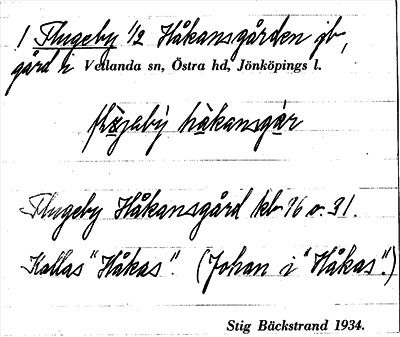 1 Flugeby 1/2 Håkansgården jb,
gård i Vetlanda sn, Östra hd, Jönköpings l.
håkansgår
Flugeby Håkansgård kb 76 o. 31.
Kallas "Håkas". (Johan i "Håkas".)
Stig Bäckstrand 1934.